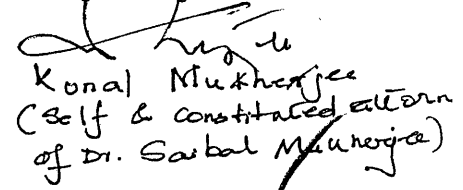 Konal Mukherjee
(Self & constituted attorn
of Dr. Saibal Mukherjee)